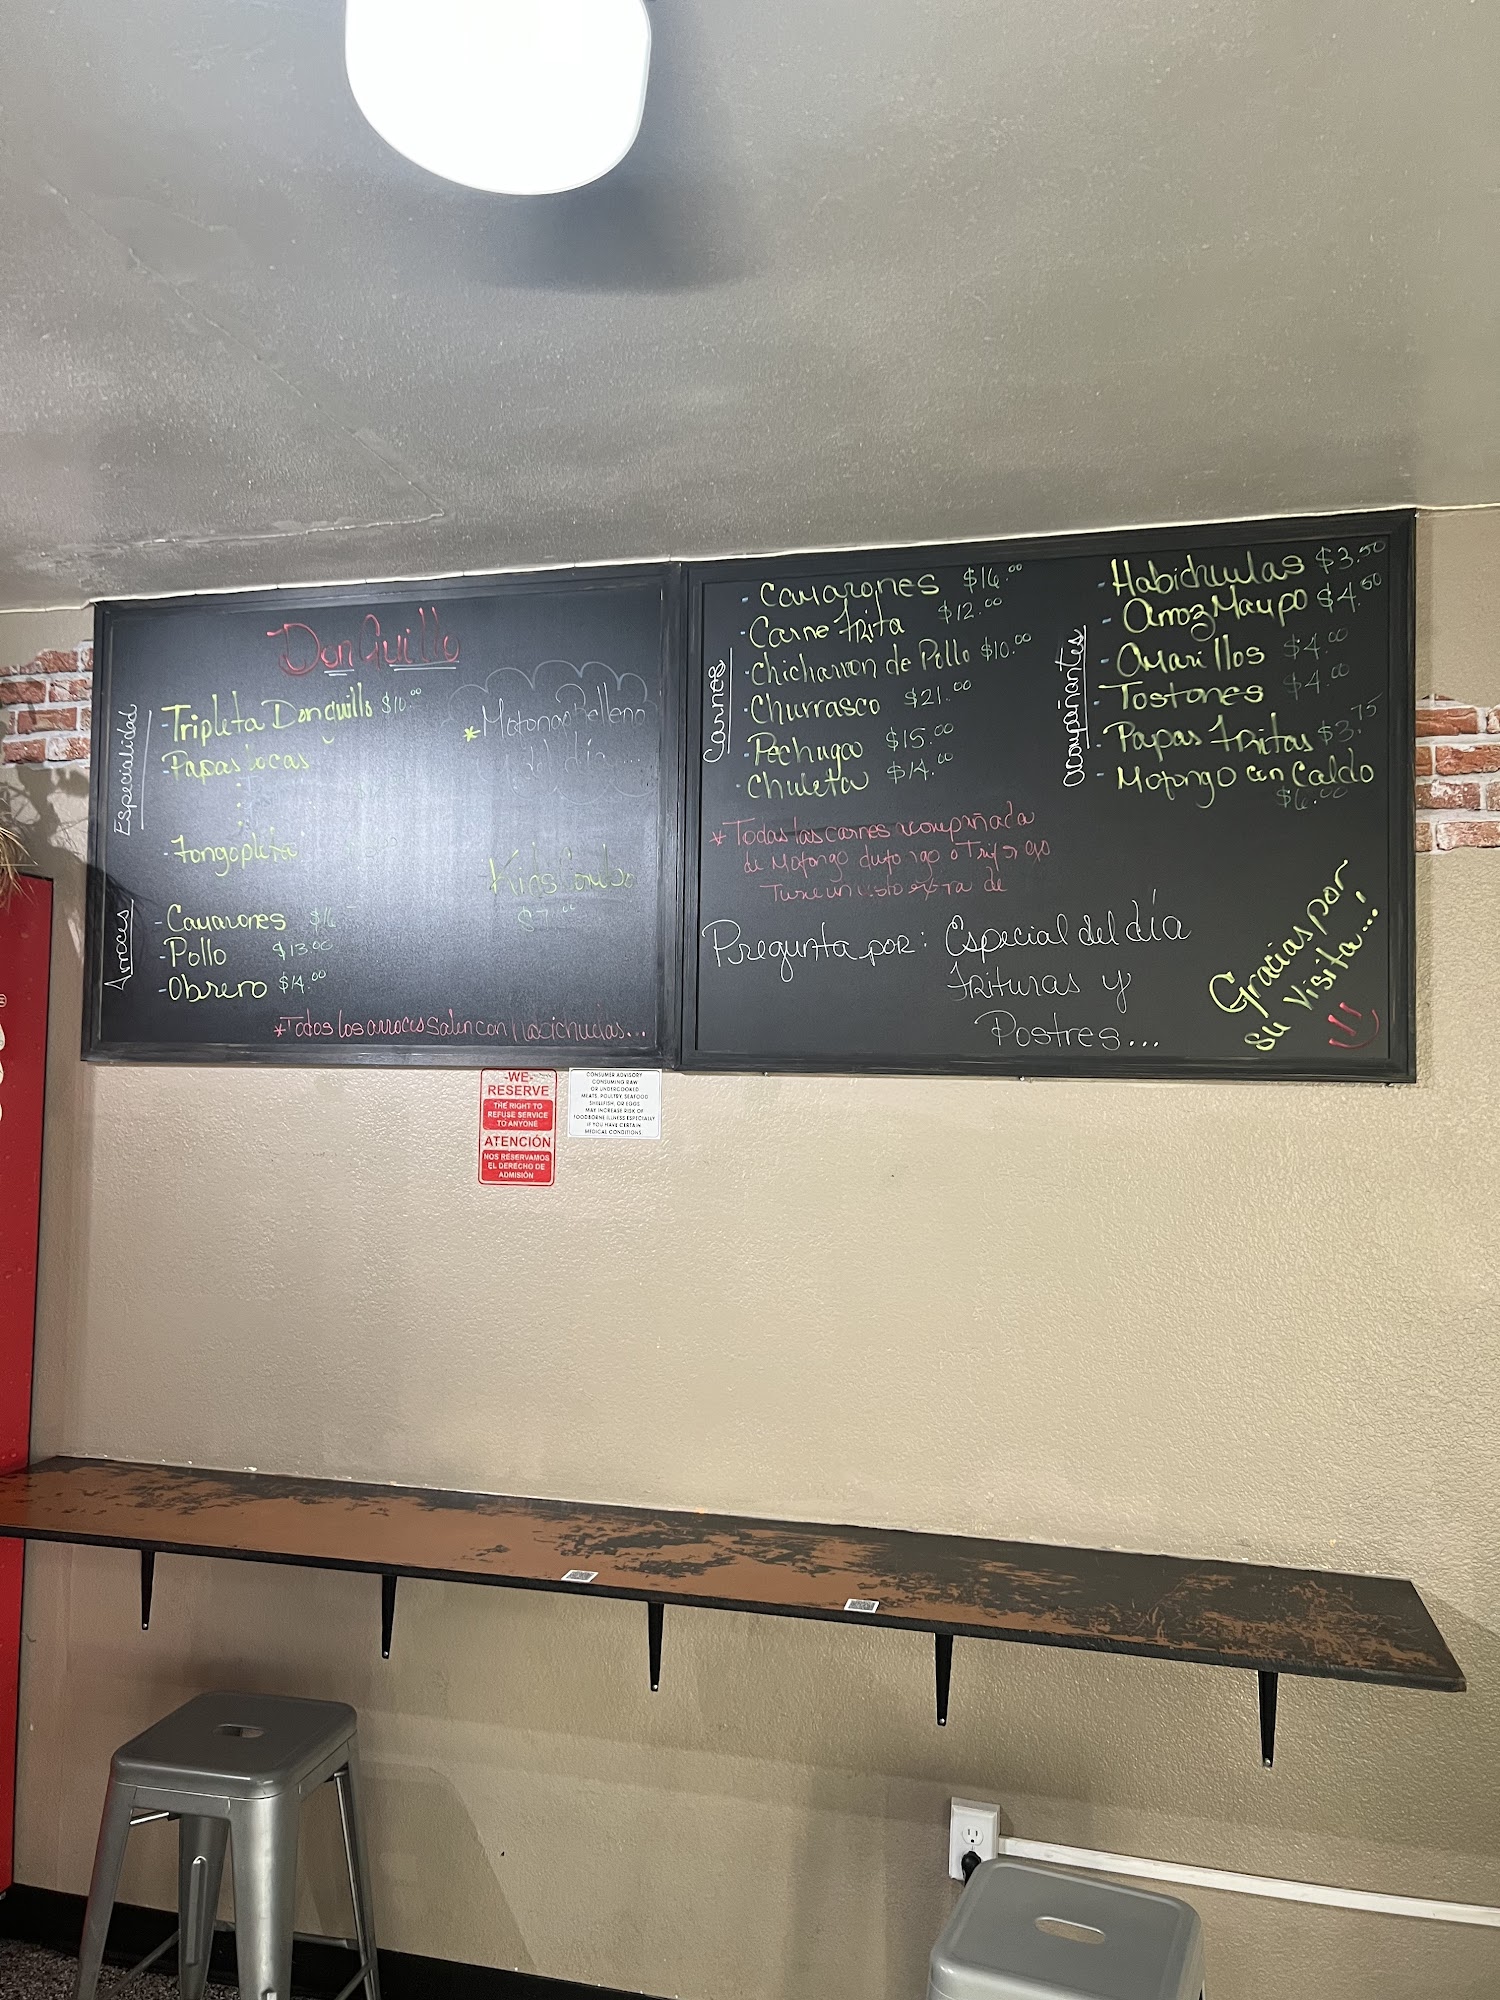 Don Guillo
Especialidad
- Tripleta Donguillo $10.00
- Papas locas
- Fongopleta
* Mofongo Relleno
del día...
Kids Combo
$7.00
Arroces
- Camarones $16
- Pollo $13.00
- Obrero $14.00
*Todos los arroces salen con Habichuelas...
Carnes
- Camarones $16.00
- Carne Frita $12.00
- Chicharron de Pollo $10.00
- Churrasco $21.00
- Pechuga $15.00
- Chuleta $14.00
* Todas las carnes acompañada
de Mofongo o
Tiene un extra de
acompañantes
- Habichuelas $3.50
- Arroz Mampo $4.50
- Amarillos $4.00
- Tostones $4.00
- Papas Fritas $3.75
- Mofongo con Caldo
$6.00
Pregunta por: Especial del día
Frituras y
Postres...
Gracias por
su Visita...!
-WE-
RESERVE
THE RIGHT TO
REFUSE SERVICE
TO ANYONE
ATENCIÓN
NOS RESERVAMOS
EL DERECHO DE
ADMISIÓN
CONSUMER ADVISORY
CONSUMING RAW
OR UNDERCOOKED
MEATS, POULTRY, SEAFOOD
SHELLFISH, OR EGGS
MAY INCREASE RISK OF
FOODBORNE ILLNESS ESPECIALLY
IF YOU HAVE CERTAIN
MEDICAL CONDITIONS